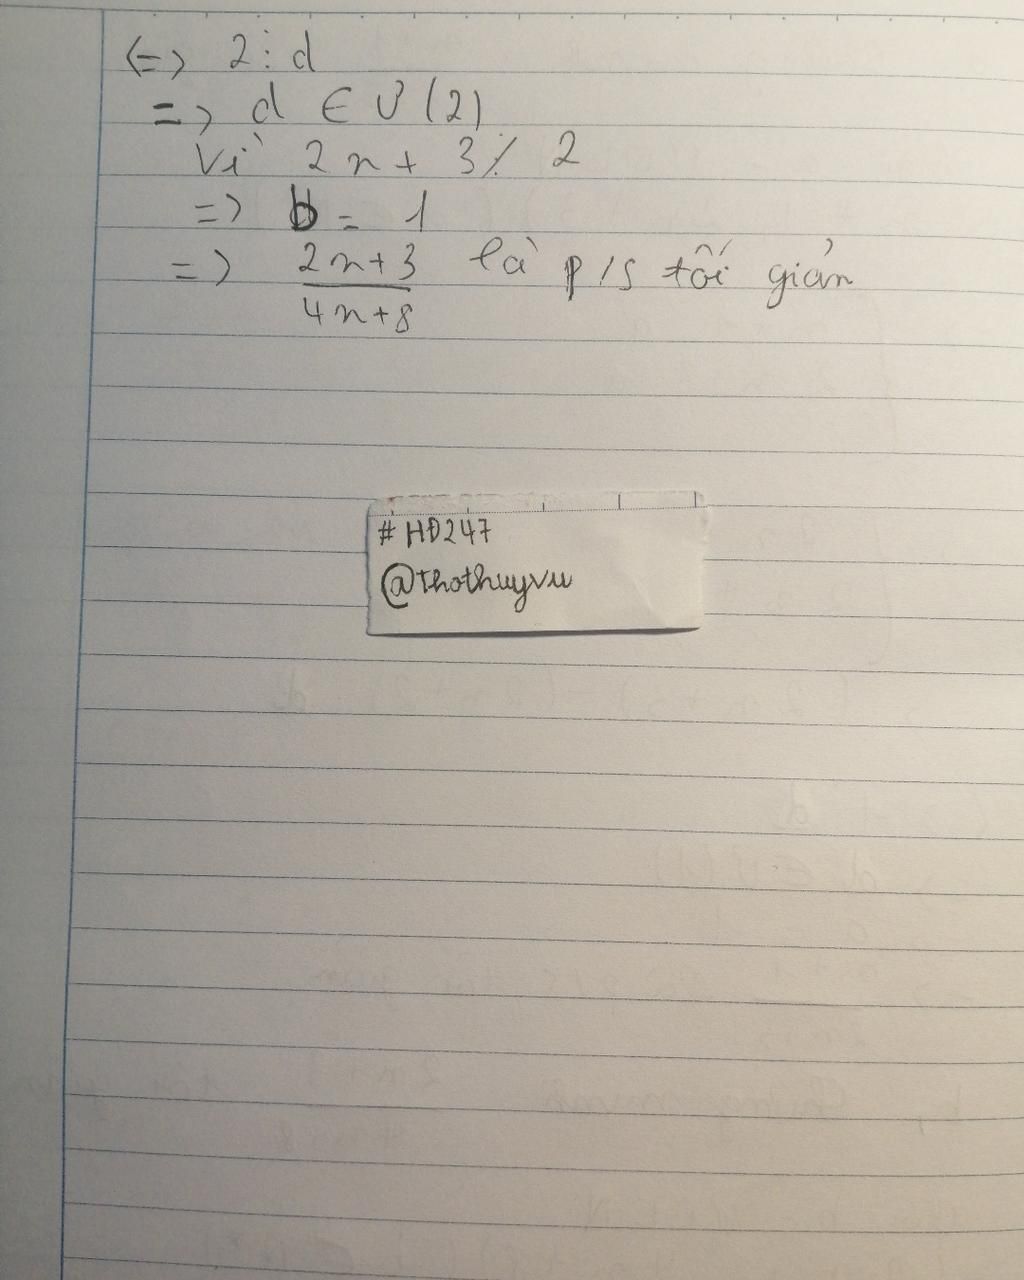 (=> 2 ⋮ d
=> d ∈ Ư(2)
Vì 2n + 3 ⋮̸ 2
=> b = 1
=> \frac{2n+3}{4n+8} là p/s tối giản
#HĐ247
@thothuyvu